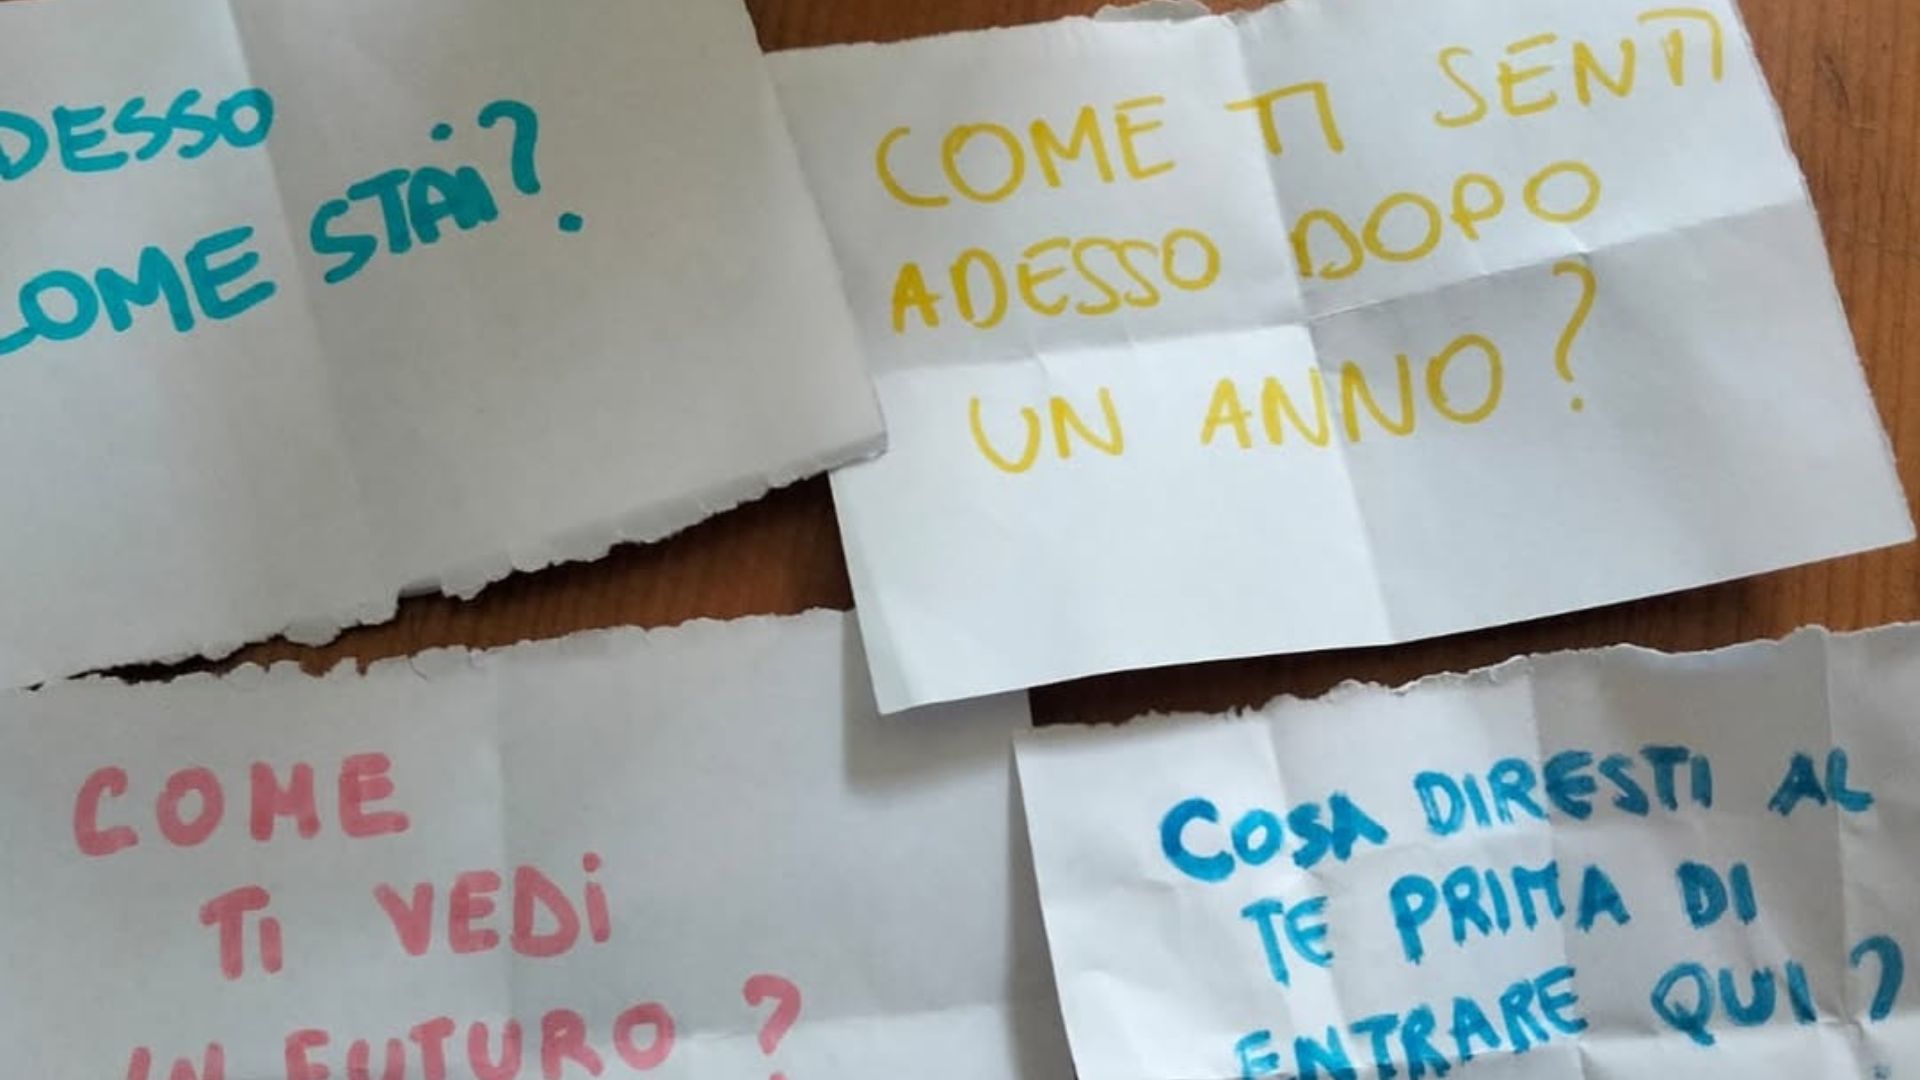 DESSO
COME STAI?
COME TI SENTI
ADESSO DOPO
UN ANNO?
COME
TI VEDI
IN FUTURO?
COSA DIRESTI AL
TE PRIMA DI
ENTRARE QUI?